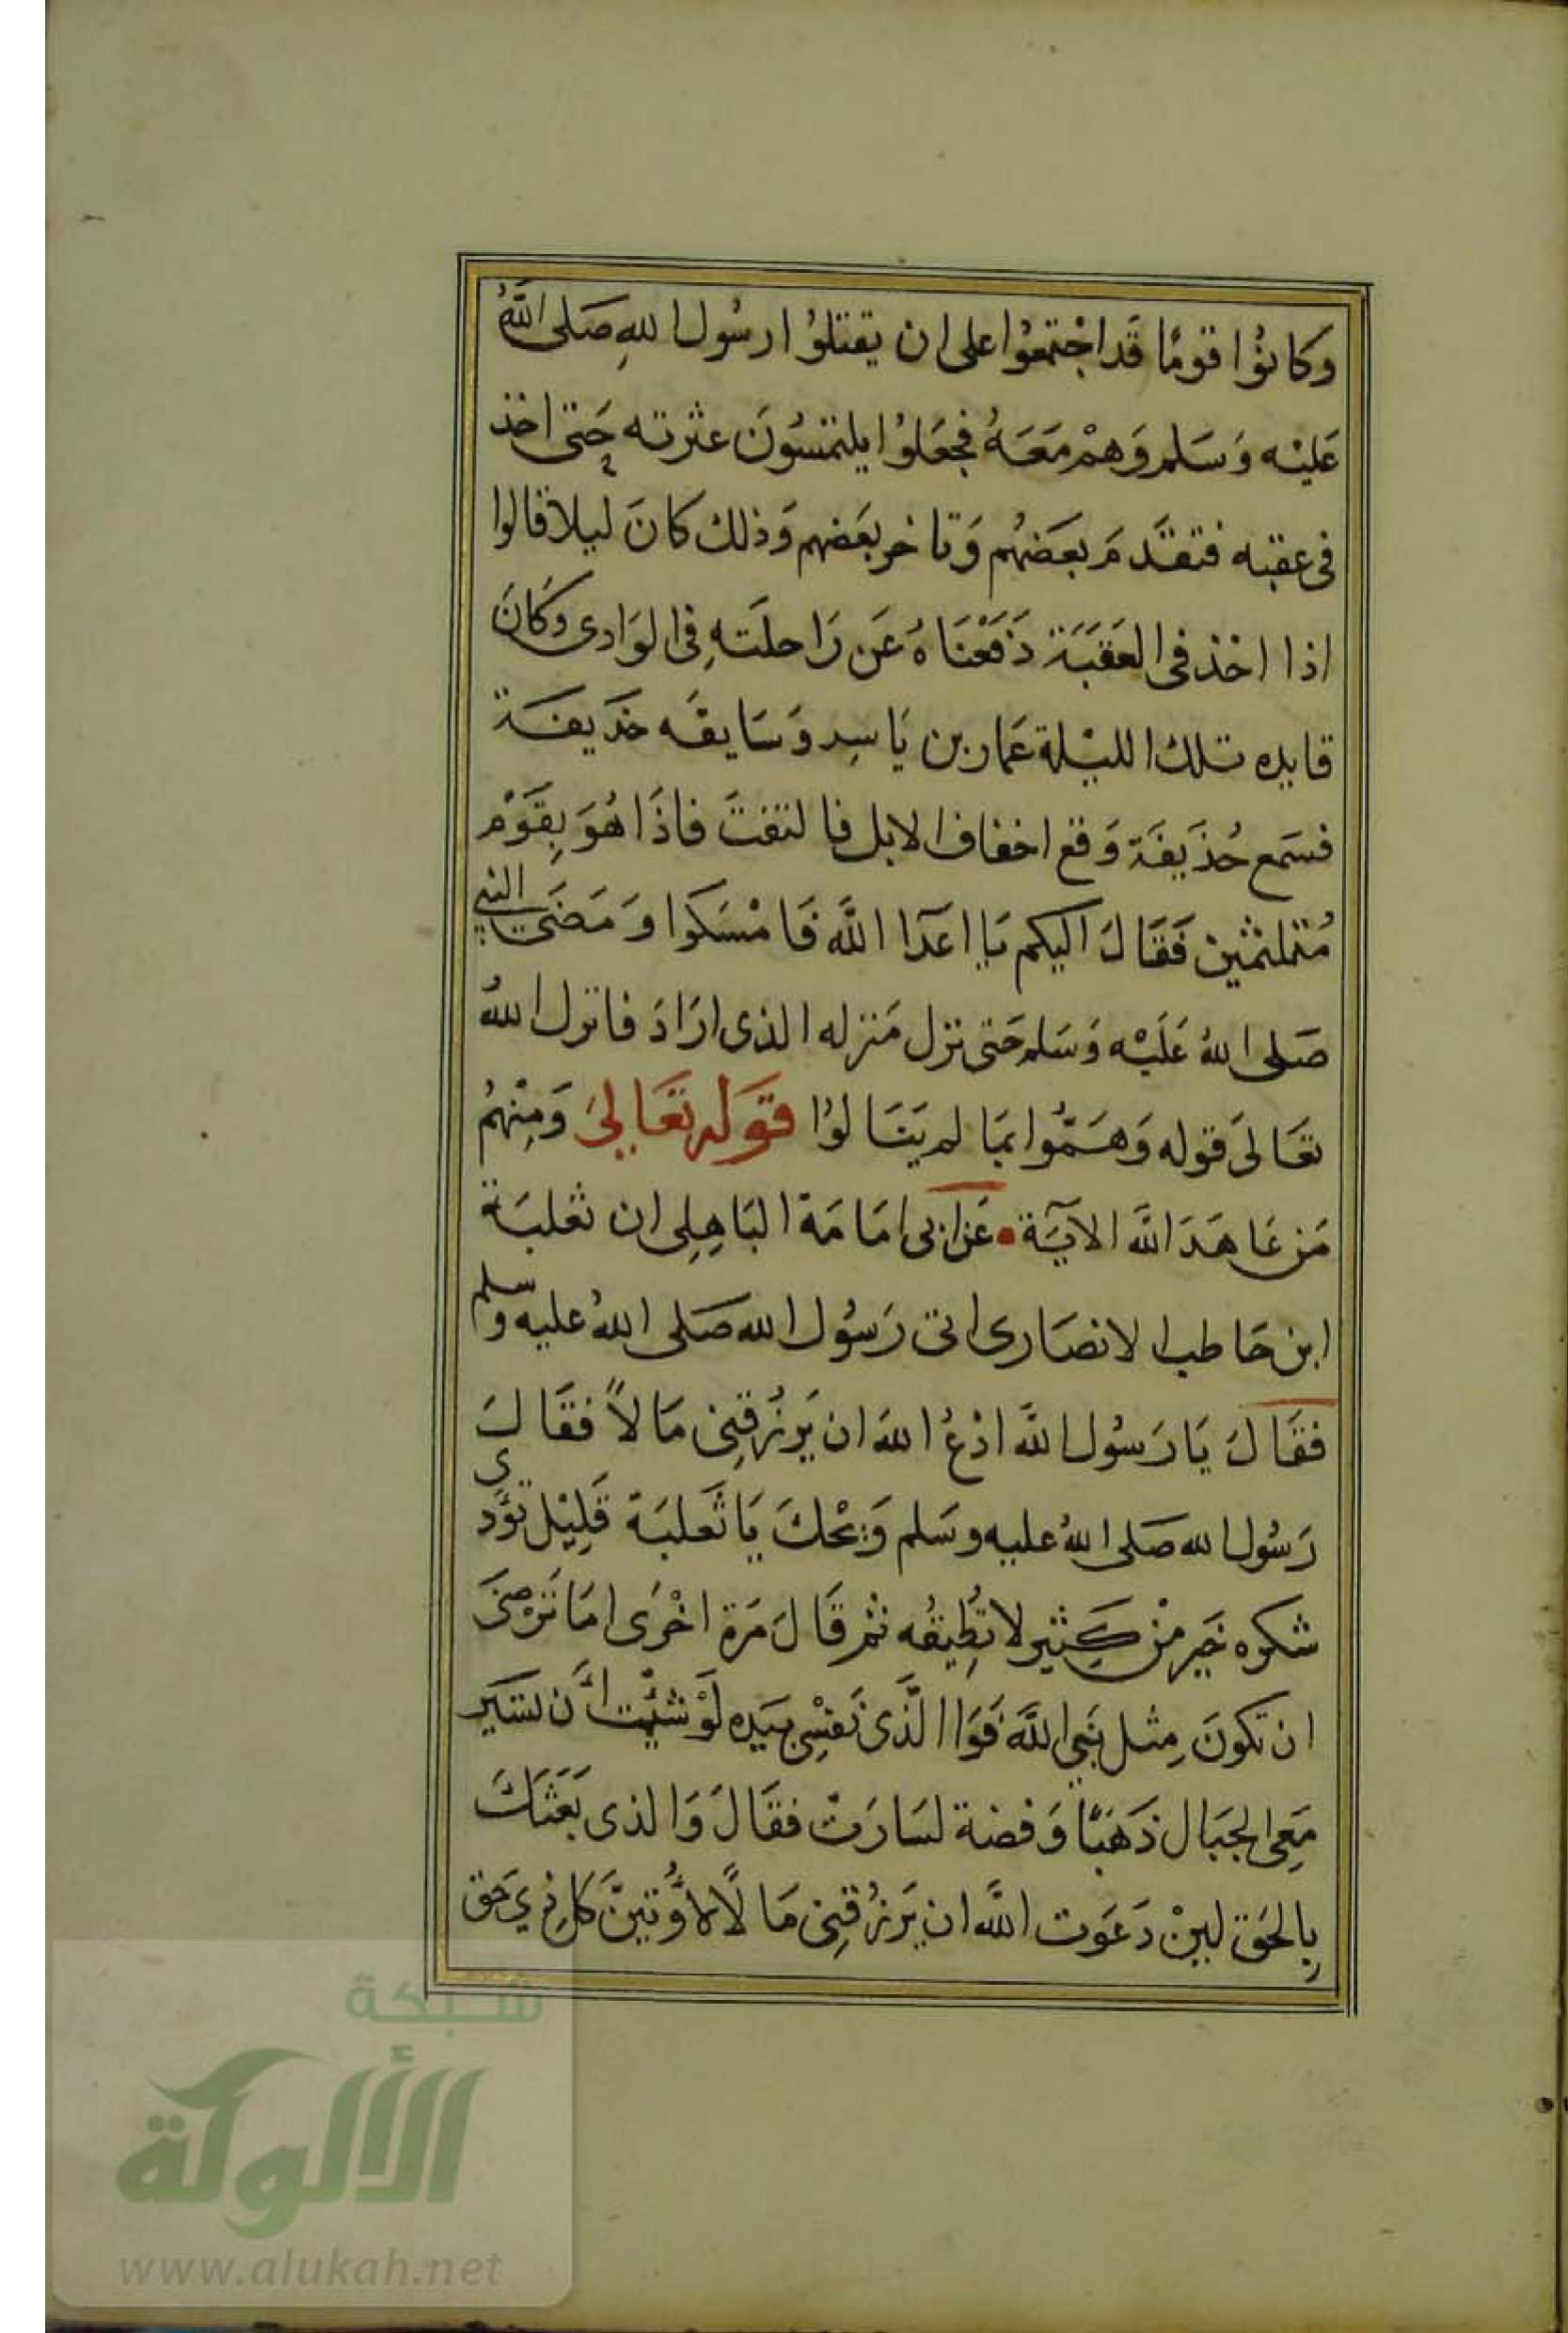 وكانوُا قومًا قَد اجْتمعُوا على ان يقتلوُا رسُول اللهِ صَلى اللهُ
عَليْه وَسَلم وَهمْ مَعَهُ فجعَلوُا يلتمسُونَ عثرته حَتى اخذ
فى عقبه فتقدَّمَ بعَضهُم وَتاخر بعَضهم وَذلك كانَ ليلا قالوا
اذا اخذ فى العَقبَة دَفعْنَاهُ عَن رَاحلَتهِ فى الوَادى وَكانَ
قايده تلك الليْلة عَمار بن يَاسِر وَسَايقه حَذيفة
فسَمع حُذيفَة وَقع اخفاف الابل فالتفتَ فاذَا هُوَ بِقَوْم
مُتملثمين فَقَالَ اليكم يا اعدَآ اللَّه فَامْسَكوا وَمَضَى النبي
صَلى اللهُ عَلَيْه وَسَلم حَتى نزل مَنزله الذى ارَادَ فانزل اللهُ
تعَالىَ قوله وَهَمُّوا بمَا لم يَنَالوُا قوَله تعَالىَ وَمِنْهُم
مَن عَاهَدَ اللَّه الآيَة • عَن ابى امَامَة البَاهِلِى ان ثعْلبَة
ابن حَاطب الانصَارى اتى رَسوُل الله صَلى اللهُ عليه وسلم
فقَالَ يَا رَسوُل اللَّه ادْعُ اللهَ ان يَرزُقِنى مَالاً فقَالَ
رَسُول الله صَلى اللهُ عليه وسَلم وَيْحكَ يَا ثَعلبَة قَلِيْل تؤَدي
شكوه خَير مْن كَثِير لا تُطِيقُه ثم قَالَ مَرَة اخْرَى امَا تَرْضَى
ان تكونَ مِثل نَبى اللَّه فَوَا الَّذىَ نَفسِْى بيَده لَوْ شئِْت أَن تسَير
مَعِى الجبَال ذَهَبًا وَفضة لسَارَتْ فقَالَ وَالذى بَعَثَكَ
بِالحَق لينْ دَعَوت اللَّه ان يَرزُقِنى مَالًا لأُوتينَّ كل ذِي حَق
شبكة
الألوكة
www.alukah.net